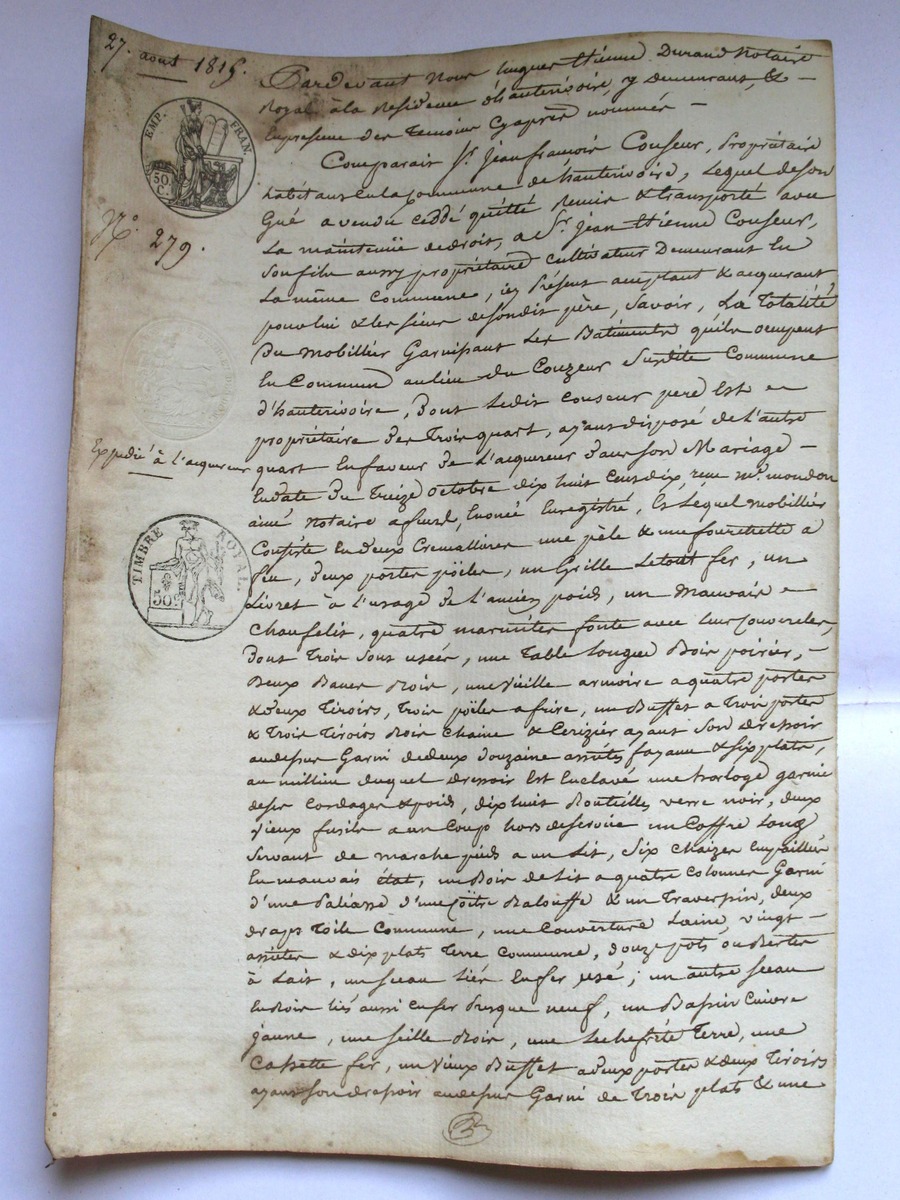 27. aout 1815.
Pardevant Nous hugues Etienne Durand Notaire
Royal à la Residence d'hauterivoire, y Demeurant, & —
En presence des Temoins Cyaprès nommés —
EMP. FRAN.
50 C.
Comparait Sr. Jean francois Couseur, Propriétaire
habitant en la Commune de hauterivoire, Lequel de son
Gué a vendu ceddé quitté Remis & transporté avec
N.º 279.
La maintenüe de droit, a Sr. Jean Etienne Couseur,
Son fils aussy propriétaire cultivateur Demeurant En
La même Commune, icy Présent acceptant & acquerant
pour lui & les siens de sondit père, Savoir, La Totalité
Du Mobillier Garnissant Les Batiments qu'ils occupent
En Commun au lieu du Couzeur Susdite Commune
d'hauterivoire, Dont Ledit Couseur pere Est —
propriétaire des Trois quart, ayant disposé de L'autre
Expedié à l'acquereur
quart En faveur de L'acquereur dans son Mariage —
En date du Treize octobre dix huit Cent dix reçu Me. mondon
aîné Notaire à , Enoncé Enregistré, Et Lequel mobillier
Consiste En deux Cremallieres une pèle & une fourchette à
TIMBRE ROYAL.
50 c.
feu, deux portes pöiles, un Grille Le tout fer, un
Livret à l'usage de l'ancien poids, un Mauvais —
Chaufelit, quatre marmites fonte avec leur couvercles,
Dont Trois Sont usées, une Table Longue Bois poirier, —
Deux Bancs Bois, une vieille armoire a quatre portes
& deux Tiroirs, Trois pöiles a frire, un Buffet a Trois portes
& Trois Tiroirs Bois Chaine & Cerizier ayant Son dressoir
audessus Garni de deux douzaine assiétes fayance & six plats,
au millieu duquel dressoir Est Enclavé une horloge garnie
de ses Cordages & poids, dix huit Bouteilles verre noir, deux
vieux fusils a un Coup hors de service un Coffre Long
Servant de marche pieds a un Lit, Six Chaizes Empaillés
En mauvais état, un Bois de Lit a quatre colonnes Garni
d'une Paliasse d'une Cöitre Balouffe & un Traversin, deux
draps Toile Commune, une Couverture Laine, vingt —
assiétes & dix plats Terre Commune, douze pots ou Bertes
à Lait, un Sceau Liés En fer usé; un autre Sceau
En Bois liés aussi En fer Presque neuf, un Bassin Cuivre
jaune, une Seille Bois, une Lechefrite Terre, une
Cassette fer, un Vieux Buffet a deux portes & deux Tiroirs
ayant Son dressoir audessus Garni de Trois plats & une